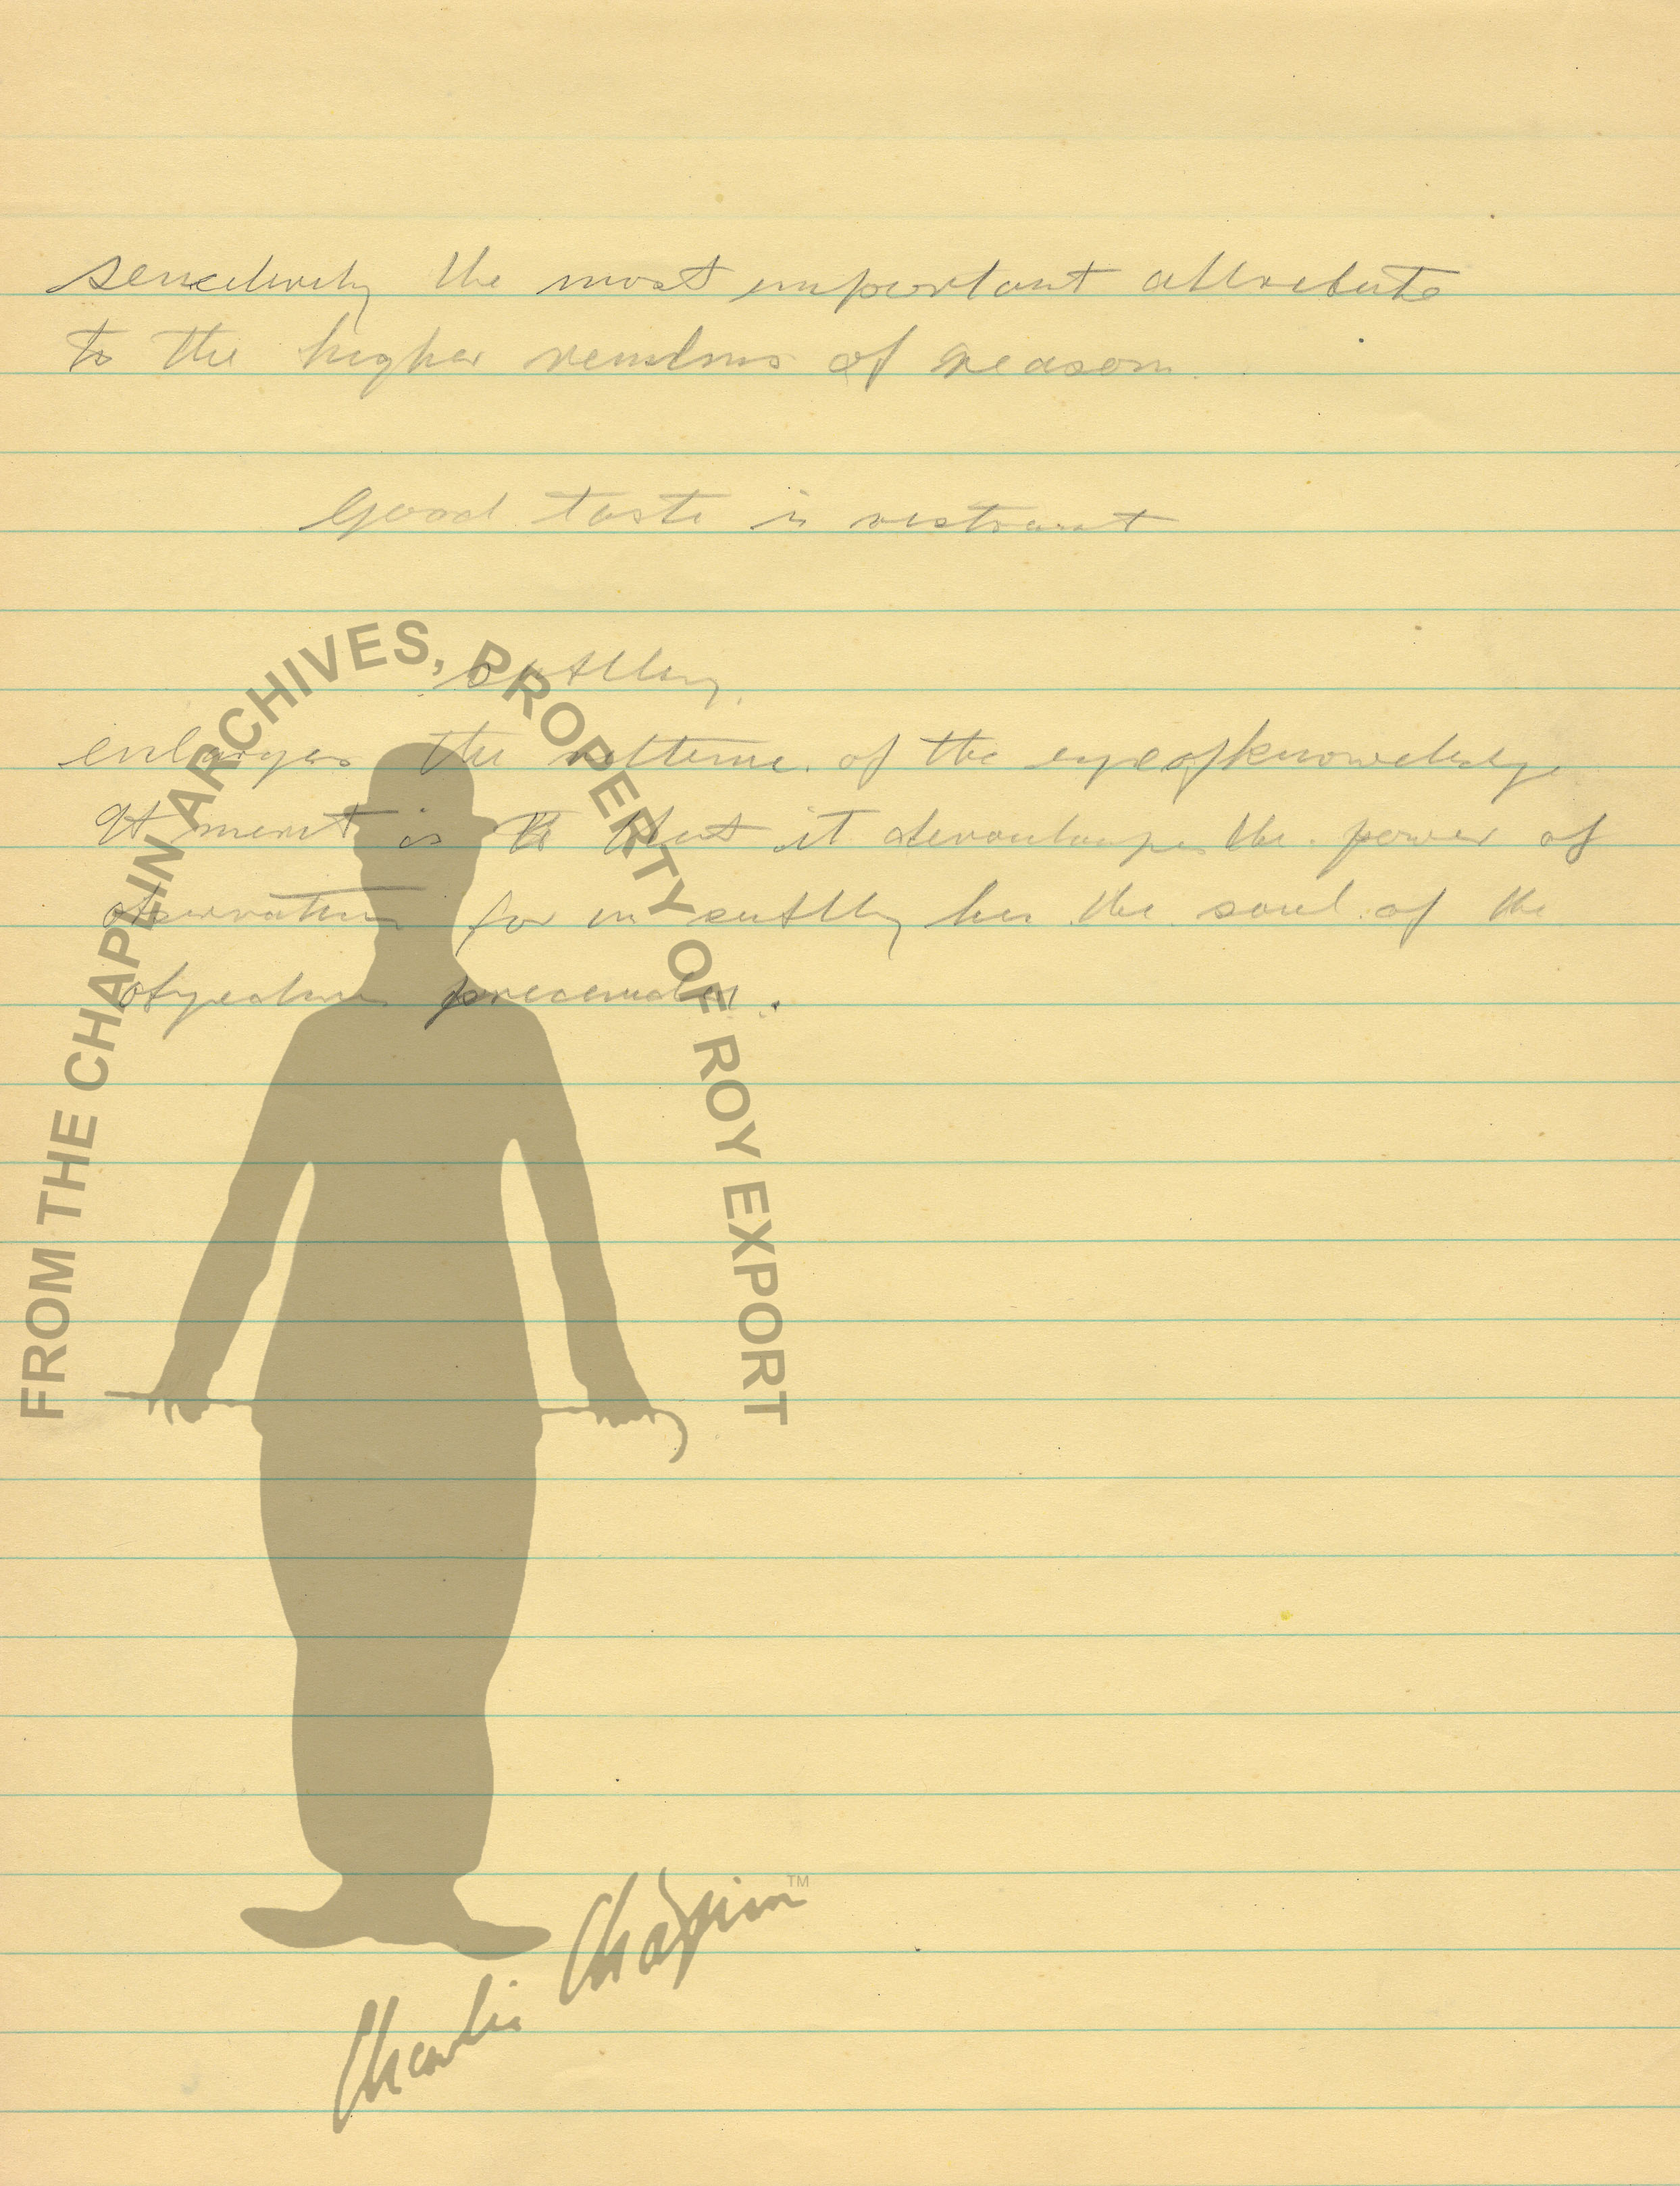 sensitivity the most important attribute
to the higher of reason.
Good taste is restraint
sutlty.
enlarges the of the eye of knowledge
It merit is that it the power of
observation for in sutlty lies the soul of the
FROM THE CHAPLIN ARCHIVES, PROPERTY OF ROY EXPORT
Charlie Chaplin TM